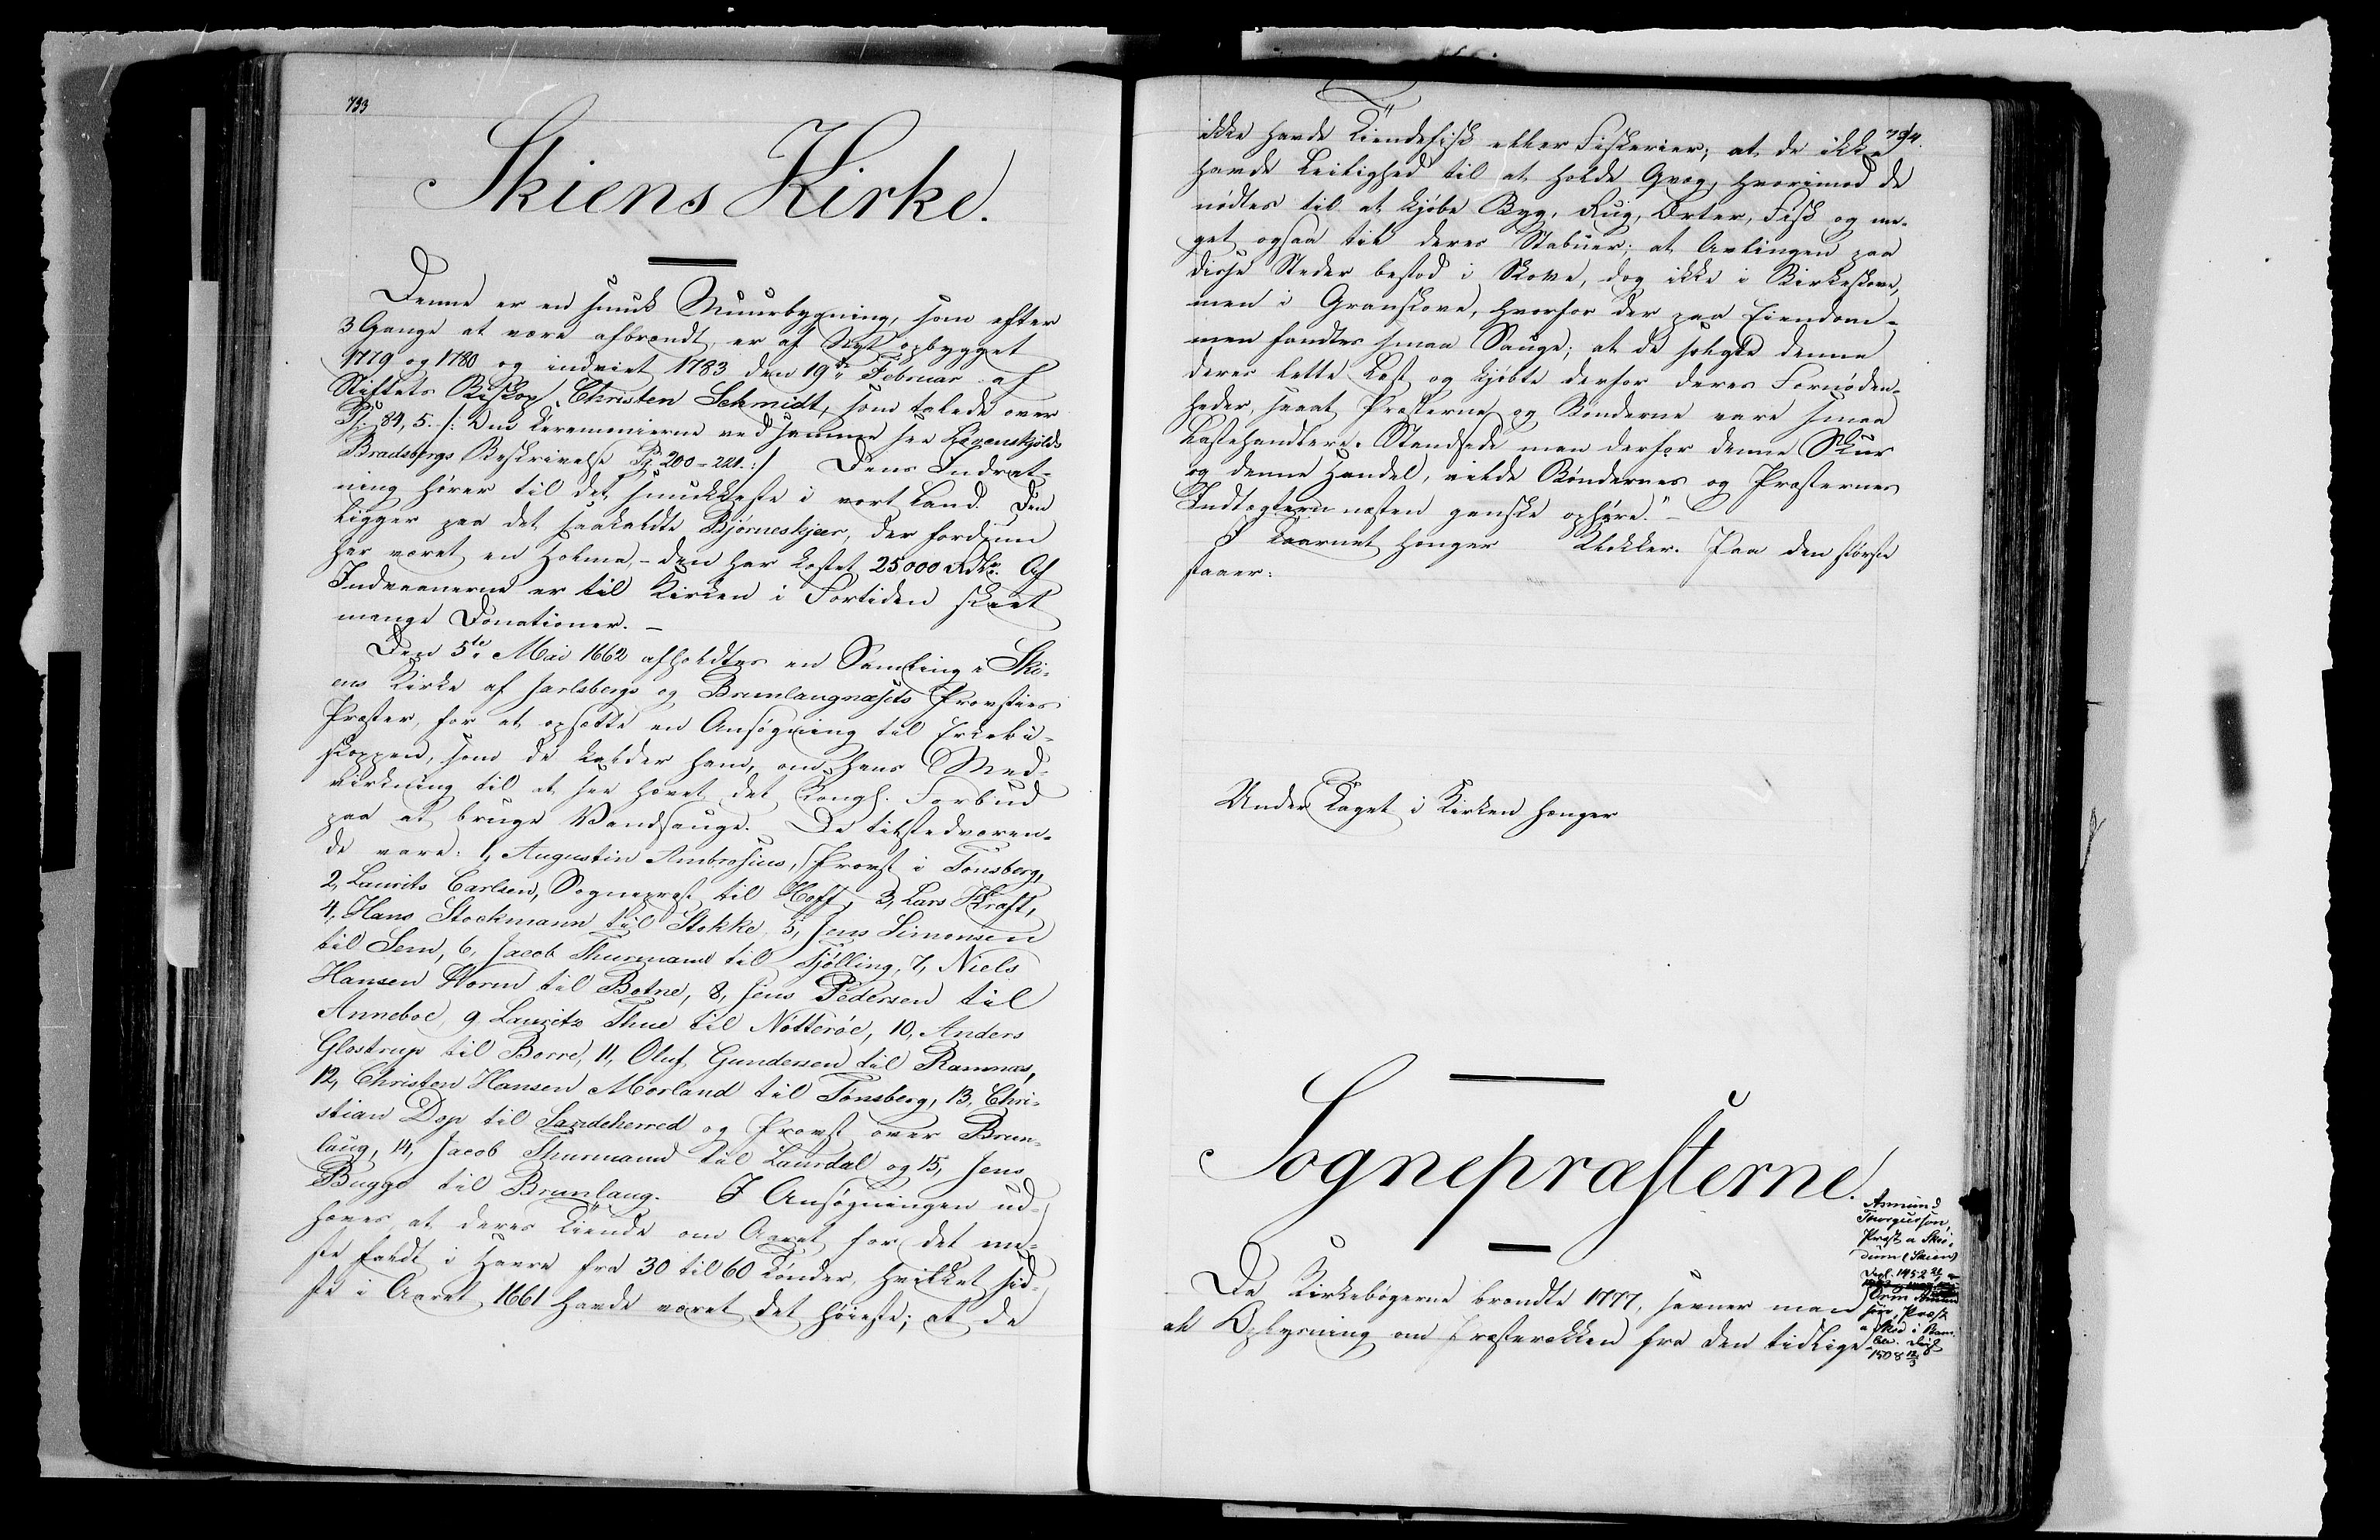 793
Skiens Kirke.
Denne er en smuk Muurbygning, som efter
3 Gange at være afbrændt, er af Nyt opbygget
1779 og 1780 og indviet 1783 den 19de Februar af
Stiftets Biskop Christen Schmidt, som talede over
Ps. 84, 5. /: Om Ceremonierne ved samme see Løvenskjolds
Bradsbergs Beskrivelse Pg. 200-221. :/ Dens Indret-
ning hører til det smukkeste i vort Land. Den
ligger paa det saakaldte Bjørneskjær, der fordum
har været en Holme, - den har kostet 25000 Rdlr. Af
Indvaanerne er til Kirken i Fortiden skeet
mange Donationer. -
Den 5te Mai 1662 afholdtes en Samling i Ski-
ens Kirke af Jarlsbergs og Brunlaugnæsets Provstiers
Præster, for at opsætte en Ansøgning til Erkebi-
skoppen, som de kalder ham, om hans Med-
virkning til at see hævet det Kongl. Forbud
paa at bruge Vandsauge. De tilstedværen-
de vare: 1, Augustin Ambrosius, Provst i Tønsberg,
2, Laurits Carlsen, Sognepræst til Hoff, 3, Lars Kraft,
4, Hans Stockmann til Stokke 5, Jens Simonsen
til Sem, 6, Jacob Thurmand til Tjølling, 7, Niels
Hansen Worm til Botne, 8, Jens Pedersen til
Anneboe, 9, Lauritz Thue til Nøtterøe, 10, Anders
Glostrup til Borre, 11, Oluf Gundersen til Ramnæs,
12, Christen Hansen Morland til Tønsberg, 13, Chri-
stian Dop til Sandeherred og Provst over Brun-
laug, 14, Jacob Thurmand til Laurdal og 15, Jens
Bugge til Brunlaug. I Ansøgningen ud-
hæves, at deres Tiende om Aaret for det me-
ste faldt i Havre fra 30 til 60 Tønder, hvilket sid-
ste i Aaret 1661 havde været det høieste; at de
794.
ikke havde Tiendefisk eller Fiskerier; at de ikke
havde Leilighed til at holde Qvæg, hvorimod de
nødtes til at kjøbe Byg, Rug, Erter, Fisk og me-
get ogsaa til deres Stabuer; at Avlingen paa
disse Steder bestod i Skove, dog ikke i Birkeskove,
men i Granskove, hvorfor der paa Eiendom-
men fandtes smaa Sauge; at de solgte denne
deres lette Last og kjøbte derfor deres Fornøden-
heder, saa at Præsterne og Bønderne vare smaa
Lastehandlere. Standsede man derfor denne Skur
og denne Handel, vilde Bøndernes og Præsternes
Indtægter næsten ganske ophøre." -
I Taarnet hænger Klokker. Paa den største
staaer:
Under Taget i Kirken hænger
Sognepræsterne.
Da Kirkebøgerne brændte 1777, savner man
al Oplysning om Præsterækken fra den tidlige-
Asmund
Thorgusson,
Præst a Ski-
dum (Skien)
Dipl. 1452
Orm
søn, Præst
a Skie i Bam-
ble. Dipl
1508 12/3